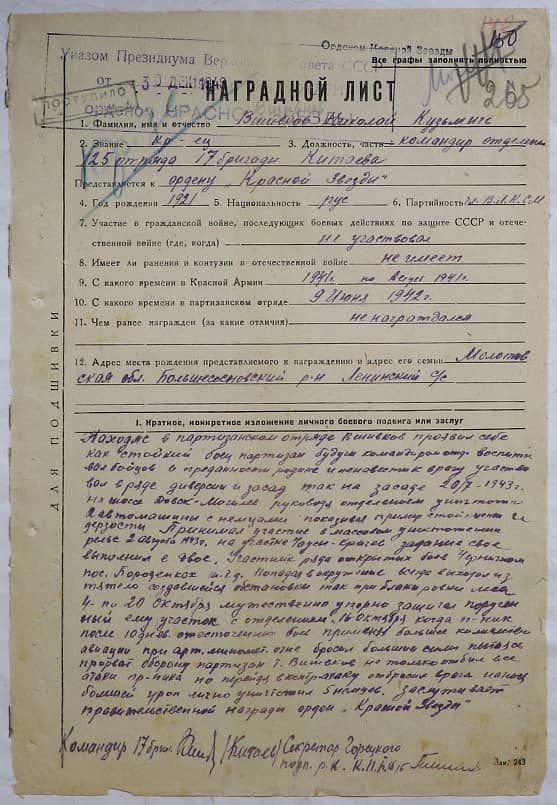 150
Орденом Красной Звезды
Все графы заполнять полностью
Указом Президиума Верховного Совета СССР
от 30 ДЕК 1948
ПОСТУПИЛО
НАГРАДНОЙ ЛИСТ
265
орденом КРАСНОЙ
1. Фамилия, имя и отчество Вшивков Николой Кузьмич
2. Звание кр-ец 3. Должность, часть командир отделения
125 отряда 17 бригады Китаева
Представляется к ордену „Красной Звезды"
4. Год рождения 1921 5. Национальность рус 6. Партийность В.Л.К.С.М
7. Участие в гражданской войне, последующих боевых действиях по защите СССР и отече-
ственной войне (где, когда) не участвовал
8. Имеет ли ранения и контузии в отечественной войне не имеет
9. С какого времени в Красной Армии 1941г. по Август 1941г.
10. С какого времени в партизанском отряде 9 Июня 1942г.
11. Чем ранее награжден (за какие отличия) не награждался
12. Адрес места рождения представляемого к награждению и адрес его семьи Молотов
ская обл. Большесосновский р-н Ленинский с/с
ДЛЯ ПОДШИВКИ
I. Краткое, конкретное изложение личного боевого подвига или заслуг
Находяс в партизанском отряде Вшивков проявил себе
как стойкий боец партизан будучи командиром отд. воспиты
вал бойцов в преданности родине и ненависти к врагу участво
вал в ряде диверсий и засад так на засаде 20/7-1943г.
на шоссе Довск-Могилев руководя отделением уничтожи
2 автомашины с немцами показывая пример стойкости и
дерзости Принимал участие в массовом уничтожении
рельс 2 августа 1943г. на участке задание свое
выполнил в двое. Участник ряда открытых боев
пос. т.д. Попадая в окружение всегда выходил из
тяжело создавшейся остановки так при блакировки леса
4- по 20 Октября мужественно упорно защищал поручен
ный ему участок с отделением. 16 Октября когда п-ник
после 10 днев. ожесточенных боев применяя большое количество
авиации при арт. миномет. огне бросил большие силы пытаясь
прорват оборону партизан т. Вшивков не только отбил все
атаки пр-ника но перейдя в контратаку отбросил врага нанося
большой урон лично уничтожил 5 немцев. Заслуживает
правительственной награды орден „Красной Звезды"
Командир 17 бриг. (Китаев) Секретарь Горецкого
подп. р-к. К.П.(б)Б
Зак. 243